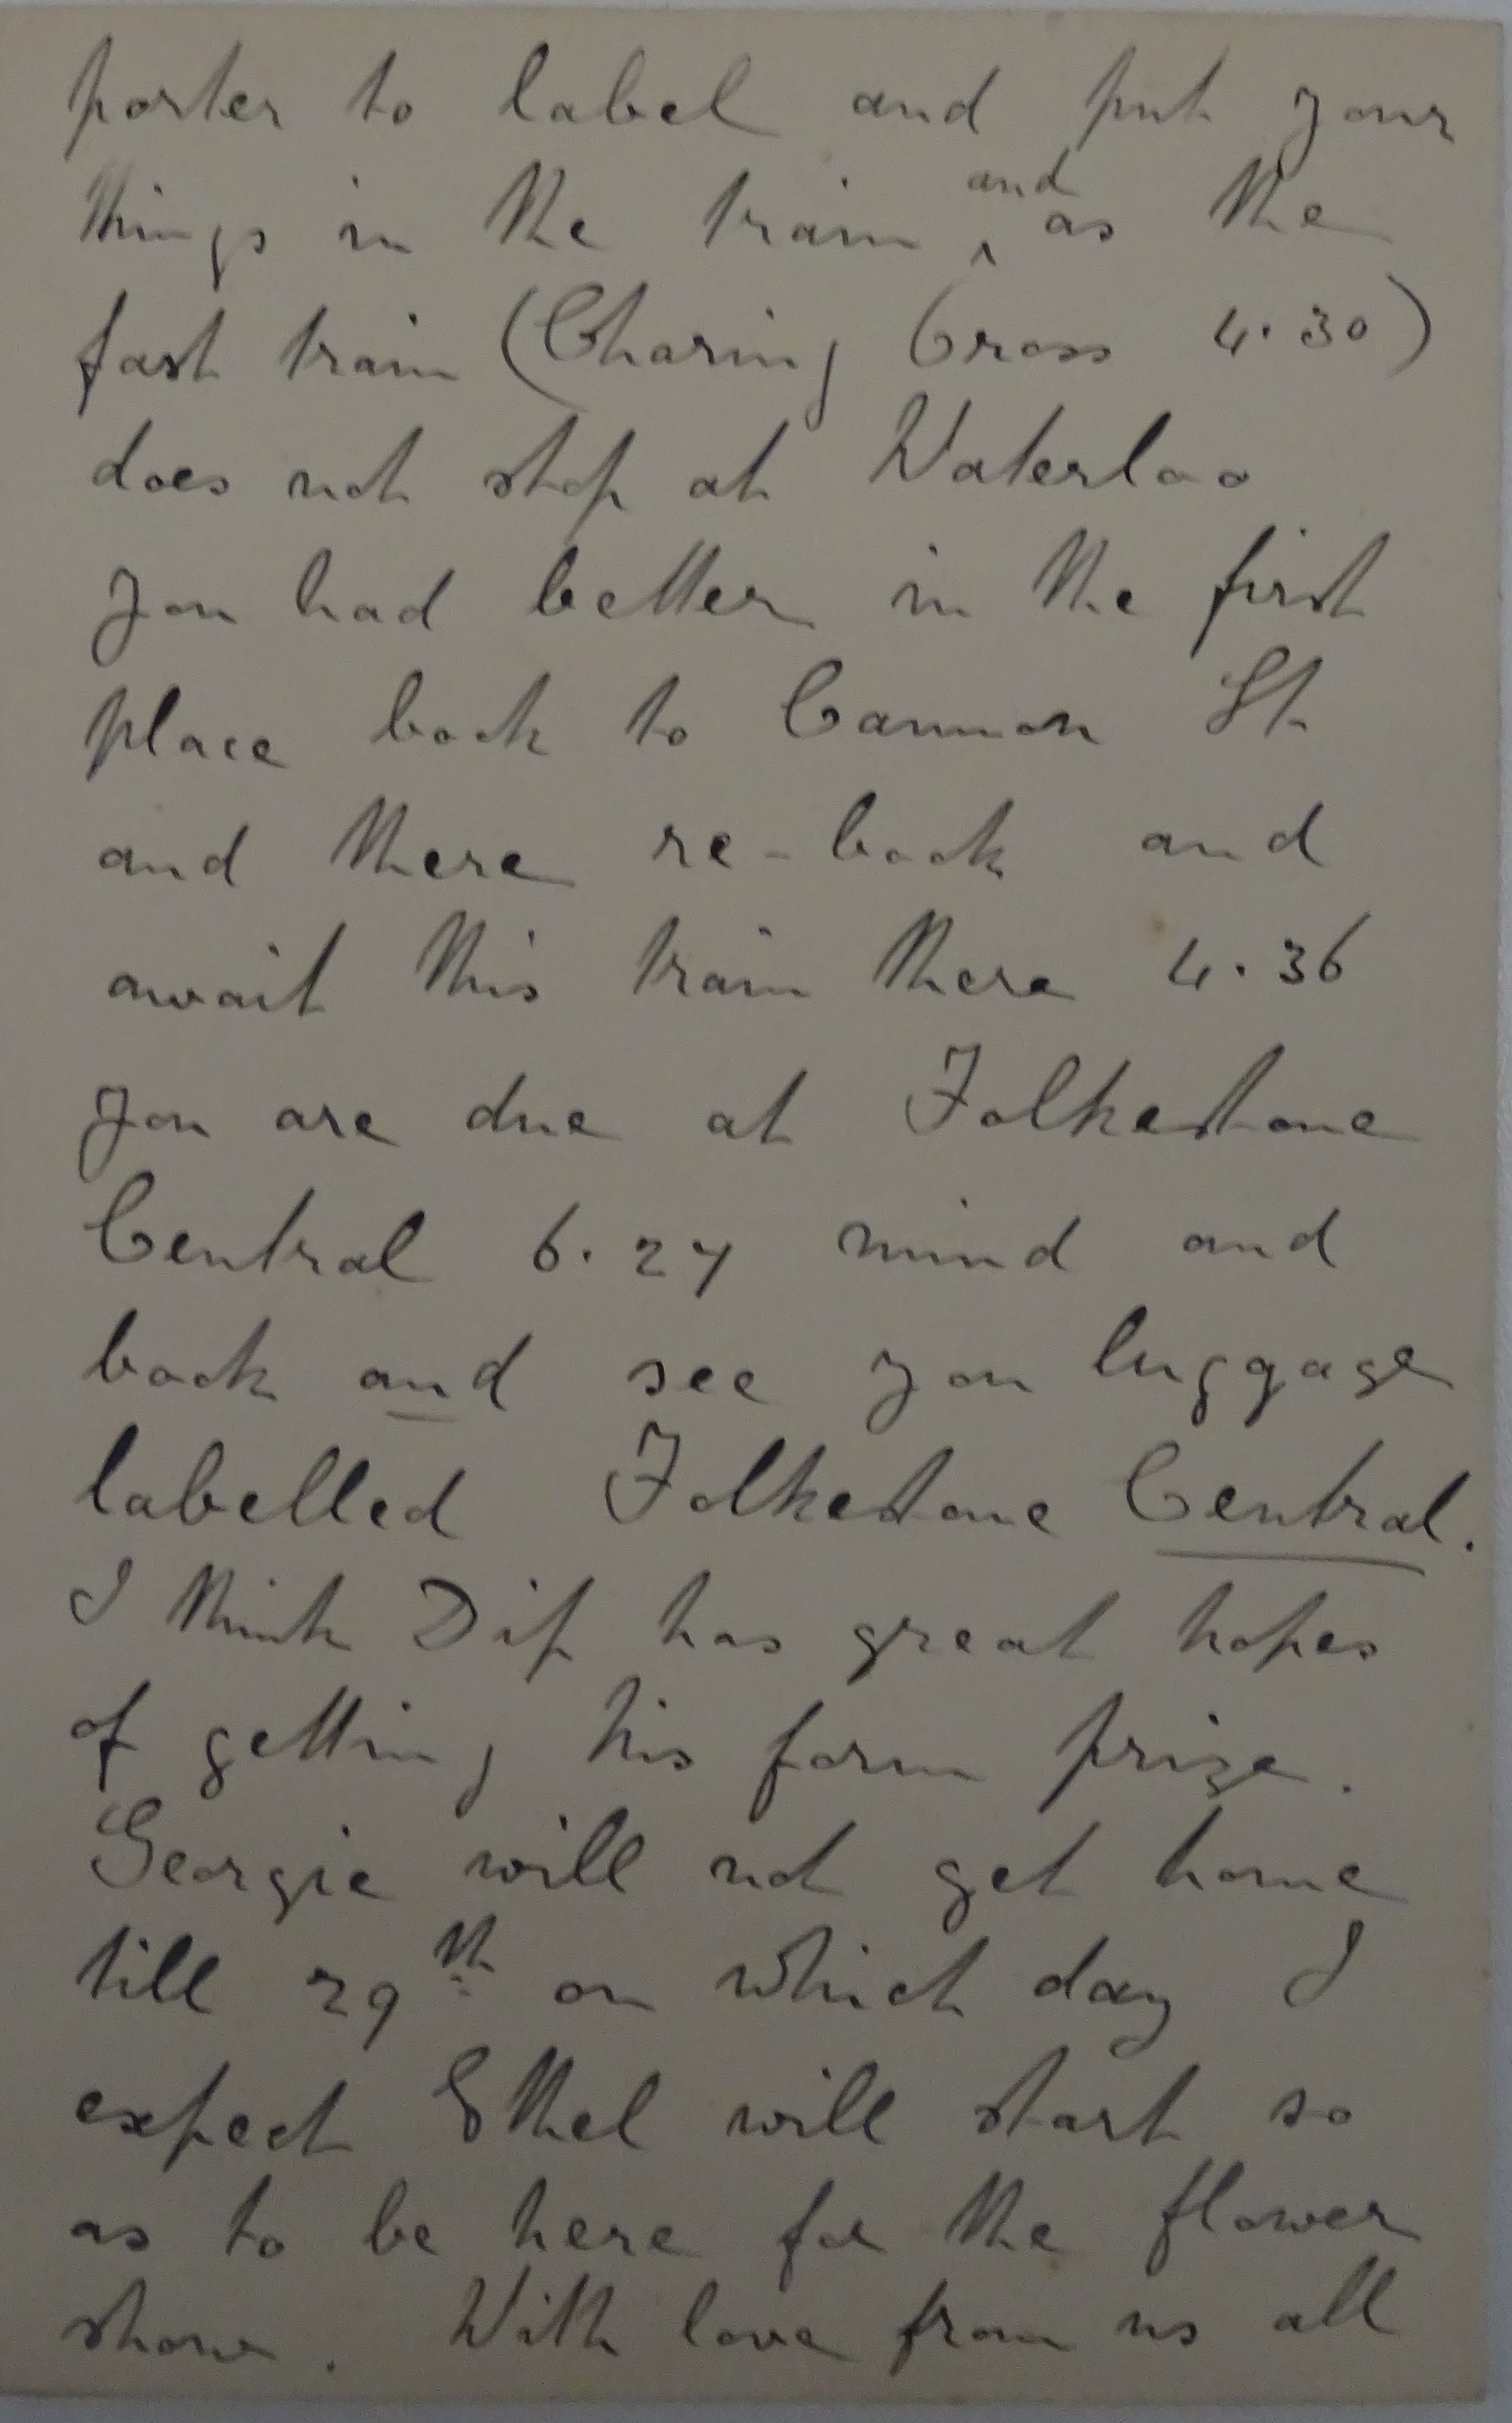 porter to label and put your
things in the train ^and as the
fast train (Charing Cross 4.30)
does not stop at Waterloo
you had better in the first
place book to Cannon St
and there re-book and
await this train there 4.36
you are due at Folkestone
Central 6.27 mind and
book and see you luggage
labelled Folkestone Central.
I think Dif has great hopes
of getting his form prize.
Georgie will not get home
till 29th on which day I
expect Ethel will start so
as to be here for the flower
show. With love from us all